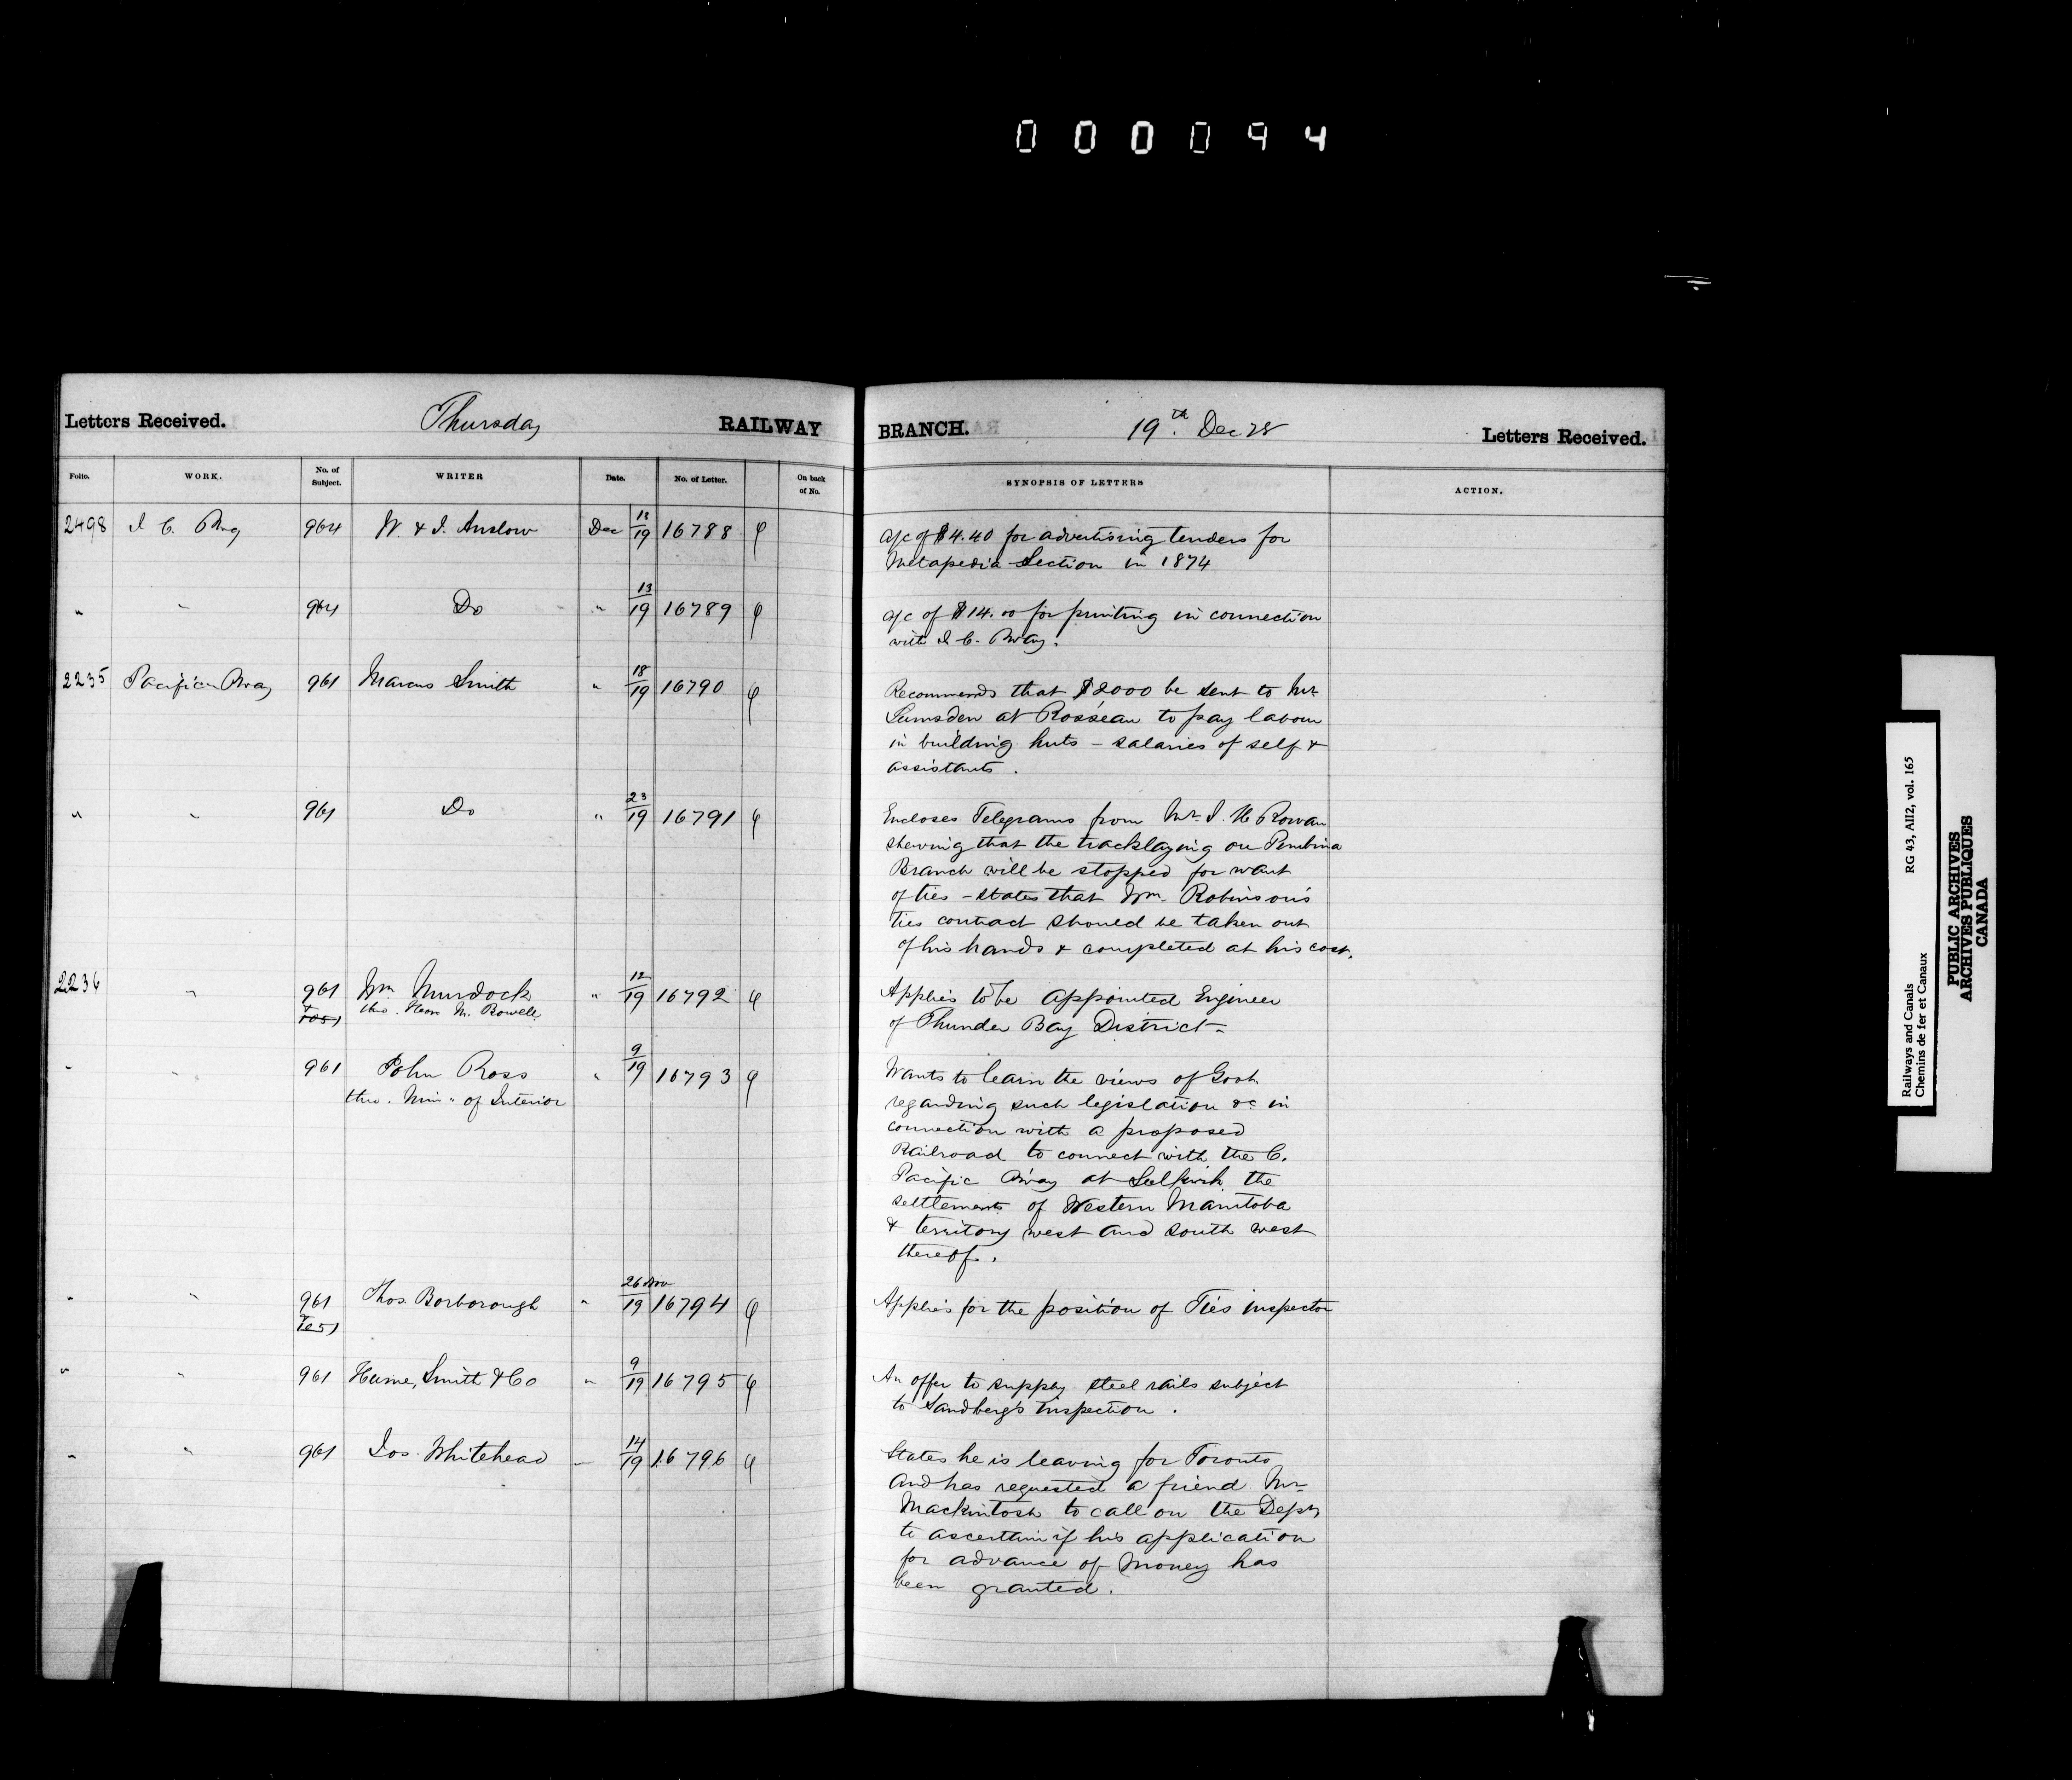 000094
Letters Received. Thursday RAILWAY BRANCH. 19th. Dec 78 Letters Received.
Folio. WORK. No. of Subject. WRITER Date. No. of Letter. On back of No. SYNOPSIS OF LETTERS ACTION.
2498 I. C. Rwy 964 W. & J. Anslow Dec 13/19 16788 a/c of $4.40 for advertising tenders for
Metapedia Section in 1874
" " 964 Do " 13/19 16789 a/c of $14.00 for printing in connection
with I. C. Rway.
2235 Pacific Rway 961 Marcus Smith " 18/19 16790 Recommends that $2000 be sent to Mr
Lumsden at Rosseau to pay labour
in building huts – salaries of self &
assistants.
" " 961 Do " 23/19 16791 Encloses Telegrams from Mr. J. H Rowan
shewing that the tracklaying on Pembina
Branch will be stopped for want
of ties – states that Wm. Robinson's
Ties contract should be taken out
of his hands & completed at his cost.
2236 " 961 Wm Murdock " 12/19 16792 Applies to be appointed Engineer
thro. Hon M. Bowell of Thunder Bay District
" " 961 John Ross " 9/19 16793 Wants to learn the views of Govt.
thro. Minr of Interior regarding such legislation &c in
connection with a proposed
Railroad to connect with the C.
Pacific Rway at Selkirk the
settlements of Western Manitoba
& territory west and south west
thereof.
" " 961 Thos. Borborough " 26 Nov/19 16794 Applies for the position of Ties inspector
" " 961 Hume, Smith & Co " 9/19 16795 An offer to supply steel rails subject
to Sandberg's inspection.
" " 961 Jos. Whitehead " 14/19 16796 States he is leaving for Toronto
And has requested a friend Mr
Mackintosh to call on the Dept
to ascertain if his application
for advance of money has
been granted.
Railways and Canals RG 43, AII2, vol. 165
Chemins de fer et Canaux
PUBLIC ARCHIVES
ARCHIVES PUBLIQUES
CANADA